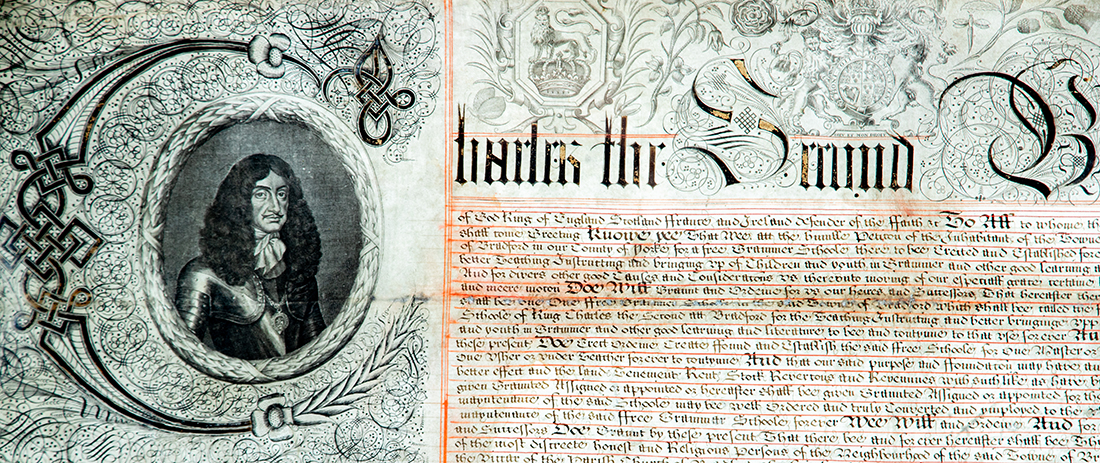 Charles the Second B
of God King of England Scotland ffrance and Ireland Defender of the ffaith &c To All to whome th
shall come Greeting Knowe yee That Wee att the humble Peticon of the Inhabitants of the Towne
of Bradford in our County of Yorke for a free Grammer Schoole there to bee Erected and Established fore
better Teaching Instructing and bringing vp of Children and youth in Grammer and other good learning a
And for divers other good Causes and Consideratons vs therevnto moving of our especiall grace certaine
and meere motion Doe Will Graunt and Ordeine for vs our Heires and Successors That hereafter there
shall bee one ffree Grammer Schoole in the said Towne of Bradford which shall bee called the f
Schoole of King Charles the Second att Bradford for the Teaching Instructing and better bringinge Vpp
and youth in Grammer and other good learning and literature to bee and continue to that vse forever An
these present Doe Erect Ordeine Create ffound and Establish the said ffree Schoole for One Master o
One Vsher or vnder Teacher forever to continue And that our said purpose and ffoundation may have an
better effect and the land Tenement Rents Stock Revertons and Revennues with such like as have b
given Graunted Assigned or appointed or hereafter shall bee given Graunted Assigned or appointed for th
mayntenance of the said Schoole may bee well Ordered and truly Converted and imployed to the
mayntenance of the said ffree Grammar Schoole forever Wee Will and Ordeyne And for
and Successors Doe Graunt by these present That there bee and for ever hereafter shall bee Th
of the most discreete honest and Religious Persons of the Neighbourhood of the said Towne of Br
the Vicar of the Parish Church of